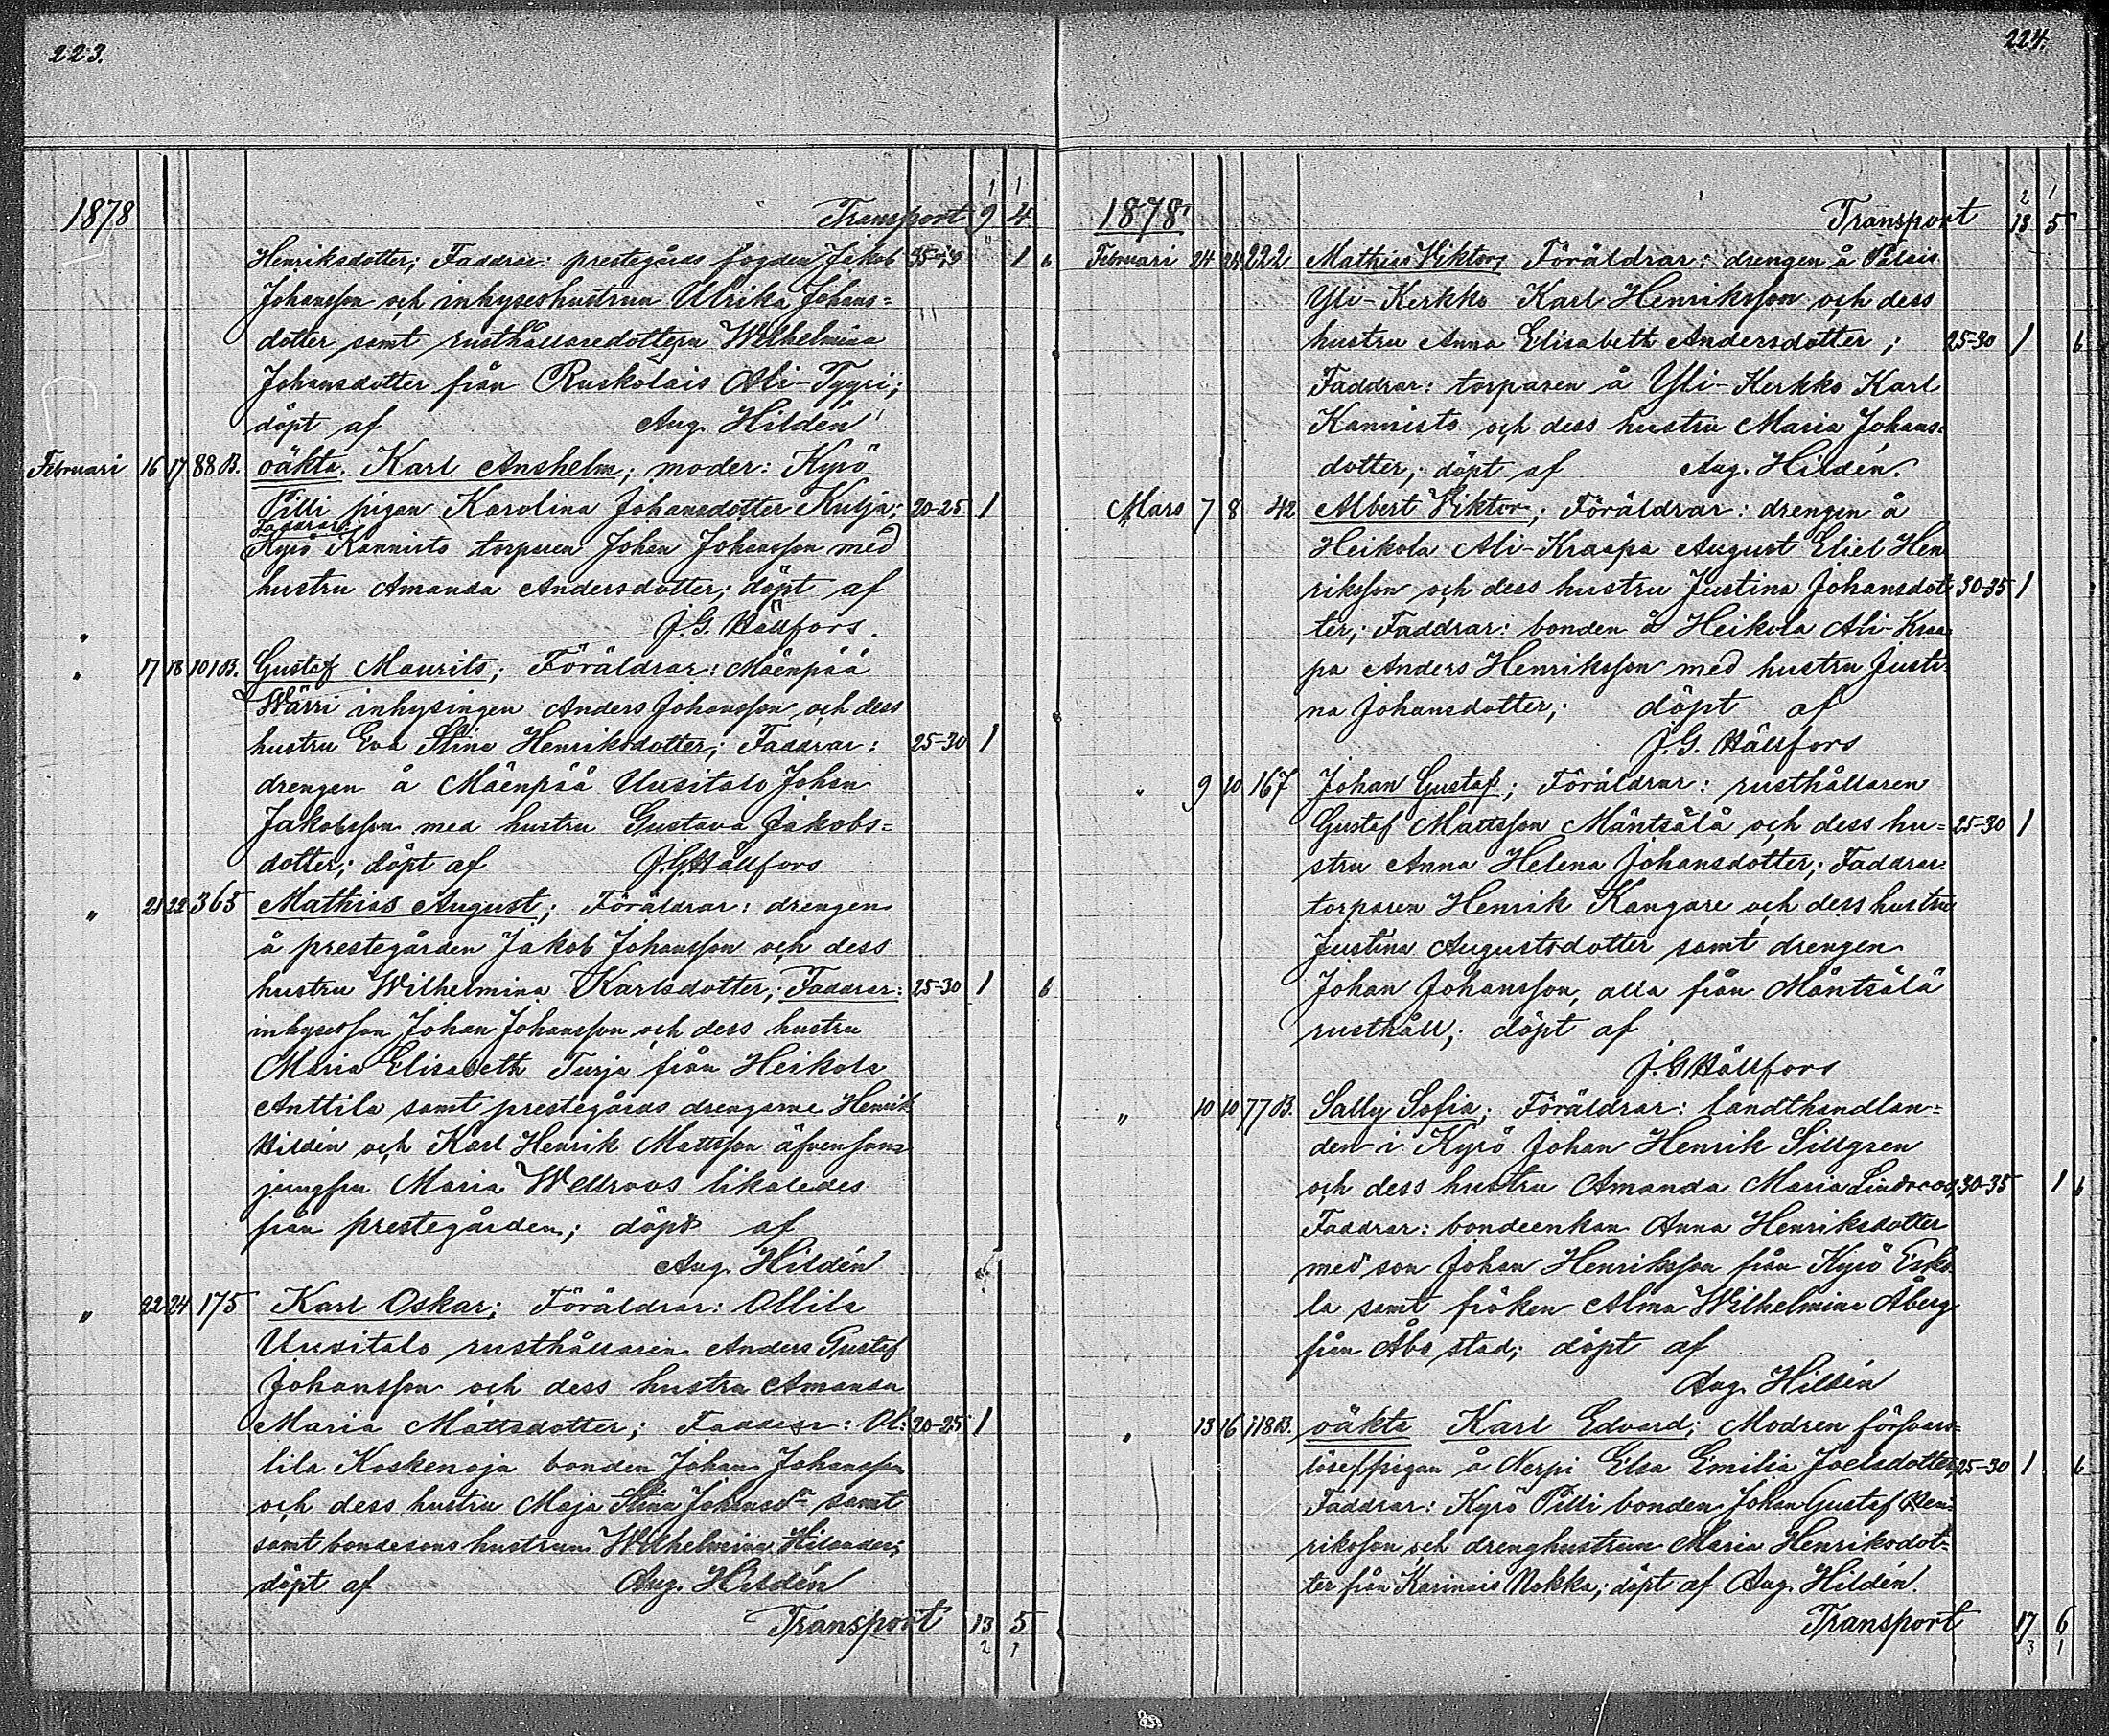 223.
1878 Transport 9 4
Henriksdotter; Faddrar: prestegårds fogden Jakob 35-40 1 6
Johansson och inhyseshustrun Ulrika Johans=
dotter samt rusthållaredottern Wilhelmina
Johansdotter från Ruskolais Ali-Tyyri;
döpt af Aug. Hildén
Februari 16 17 88 B. oäkta Karl Anshelm; moder: Kyrö
Pilli pigan Karolina Johansdotter Kulja; 20-25 1
Faddrar:
Kyrö Kannisto torparen Johan Johansson med
hustru Amanda Andersdotter; döpt af
J. G. Hällfors.
" 17 18 101 B. Gustaf Maurits; Föräldrar: Mäenpää
Wärri inhysingen Anders Johansson och dess
hustru Eva Stina Henriksdotter; Faddrar: 25-30 1
drengen å Mäenpää Uusitalo Johan
Jakobsson med hustru Gustava Jakobs=
dotter; döpt af J. G. Hällfors
" 21 22 365 Mathias August; Föräldrar: drengen
å prestegården Jakob Johansson och dess
hustru Wilhelmina Karlsdotter; Faddrar: 25-30 1 6
inhyseson Johan Johansson och dess hustru
Maria Elisabeth Turja från Heikola
Anttila samt prestegårds drengarne Henrik
Hildén och Karl Henrik Mattsson äfvensom
jungfru Maria Wellroos likaledes
från prestegården; döpt af
Aug. Hildén
" 22 24 175 Karl Oskar; Föräldrar: Ollila
Uusitalo rusthållaren Anders Gustaf
Johansson och dess hustru Amanda
Maria Mattsdotter; Faddrar: Ol= 20-25 1
lila Koskenoja bonden Johan Johansson
och dess hustru Maja Stina Johansdr samt
samt bondesons hustrun Wilhelmina Hilander;
döpt af Aug. Hildén
Transport 13 5
2 1
224.
1878 Transport 13 5
Februari 24 24 222 Mathias Viktor; Föräldrar: drengen å Palais
Yli-Kerkko Karl Henriksson och dess
hustru Anna Elisabeth Andersdotter; 25-30 1 6
Faddrar: torparen å Yli-Kerkko Karl
Kannisto och dess hustru Maria Johans=
dotter; döpt af Aug. Hildén.
Mars 7 8 42 Albert Viktor; Föräldrar: drengen å
Heikola Ali-Kraapa August Eliel Hen
riksson och dess hustru Justina Johansdot 30-35 1
ter; Faddrar: bonden å Heikola Ali-Kraa
pa Anders Henriksson med hustru Justi=
na Johansdotter; döpt af
J. G. Hällfors
" 9 10 167 Johan Gustaf; Föräldrar: rusthållaren
Gustaf Mattsson Mäntsälä och dess hu= 25-30 1
stru Anna Helena Johansdotter; Faddrar:
torparen Henrik Kangare och dess hustru
Justina Augustsdotter samt drengen
Johan Johansson, alla från Mäntsälä
rusthåll; döpt af
J. G. Hällfors
" 10 10 77 B. Sally Sofia; Föräldrar: landthandlan=
den i Kyrö Johan Henrik Sillgren
och dess hustru Amanda Maria Lindroos; 30-35 1 6
Faddrar: bondeenkan Anna Henriksdotter
med son Johan Henriksson från Kyrö Esko
la samt fröken Alma Wilhelmina Åberg
från Åbo stad; döpt af
Aug. Hildén
" 13 16 118 B. oäkta Karl Edvard; Modren försvars=
lösepigan å Nerpi Elsa Emilia Joelsdotter; 25-30 1 6
Faddrar: Kyrö Pilli bonden Johan Gustaf Hen=
riksson och drenghustrun Maria Henriksdot=
ter från Karinais Nokka; döpt af Aug. Hildén.
Transport 17 6
3 1